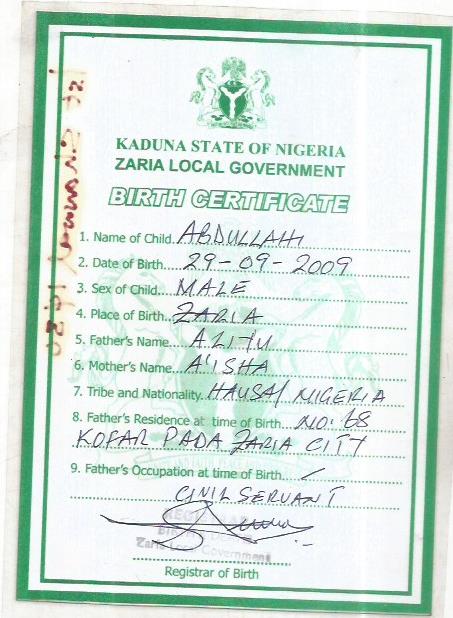 KADUNA STATE OF NIGERIA
ZARIA LOCAL GOVERNMENT
BIRTH CERTIFICATE
1. Name of Child ABDULLAHI
2. Date of Birth 29-09-2009
3. Sex of Child MALE
4. Place of Birth ZARIA
5. Father's Name ALIYU
6. Mother's Name A'ISHA
7. Tribe and Nationality HAUSA/ NIGERIA
8. Father's Residence at time of Birth NO. 68
KOFAR PADA ZARIA CITY
9. Father's Occupation at time of Birth
CIVIL SERVANT
Zaria Local Government
Registrar of Birth